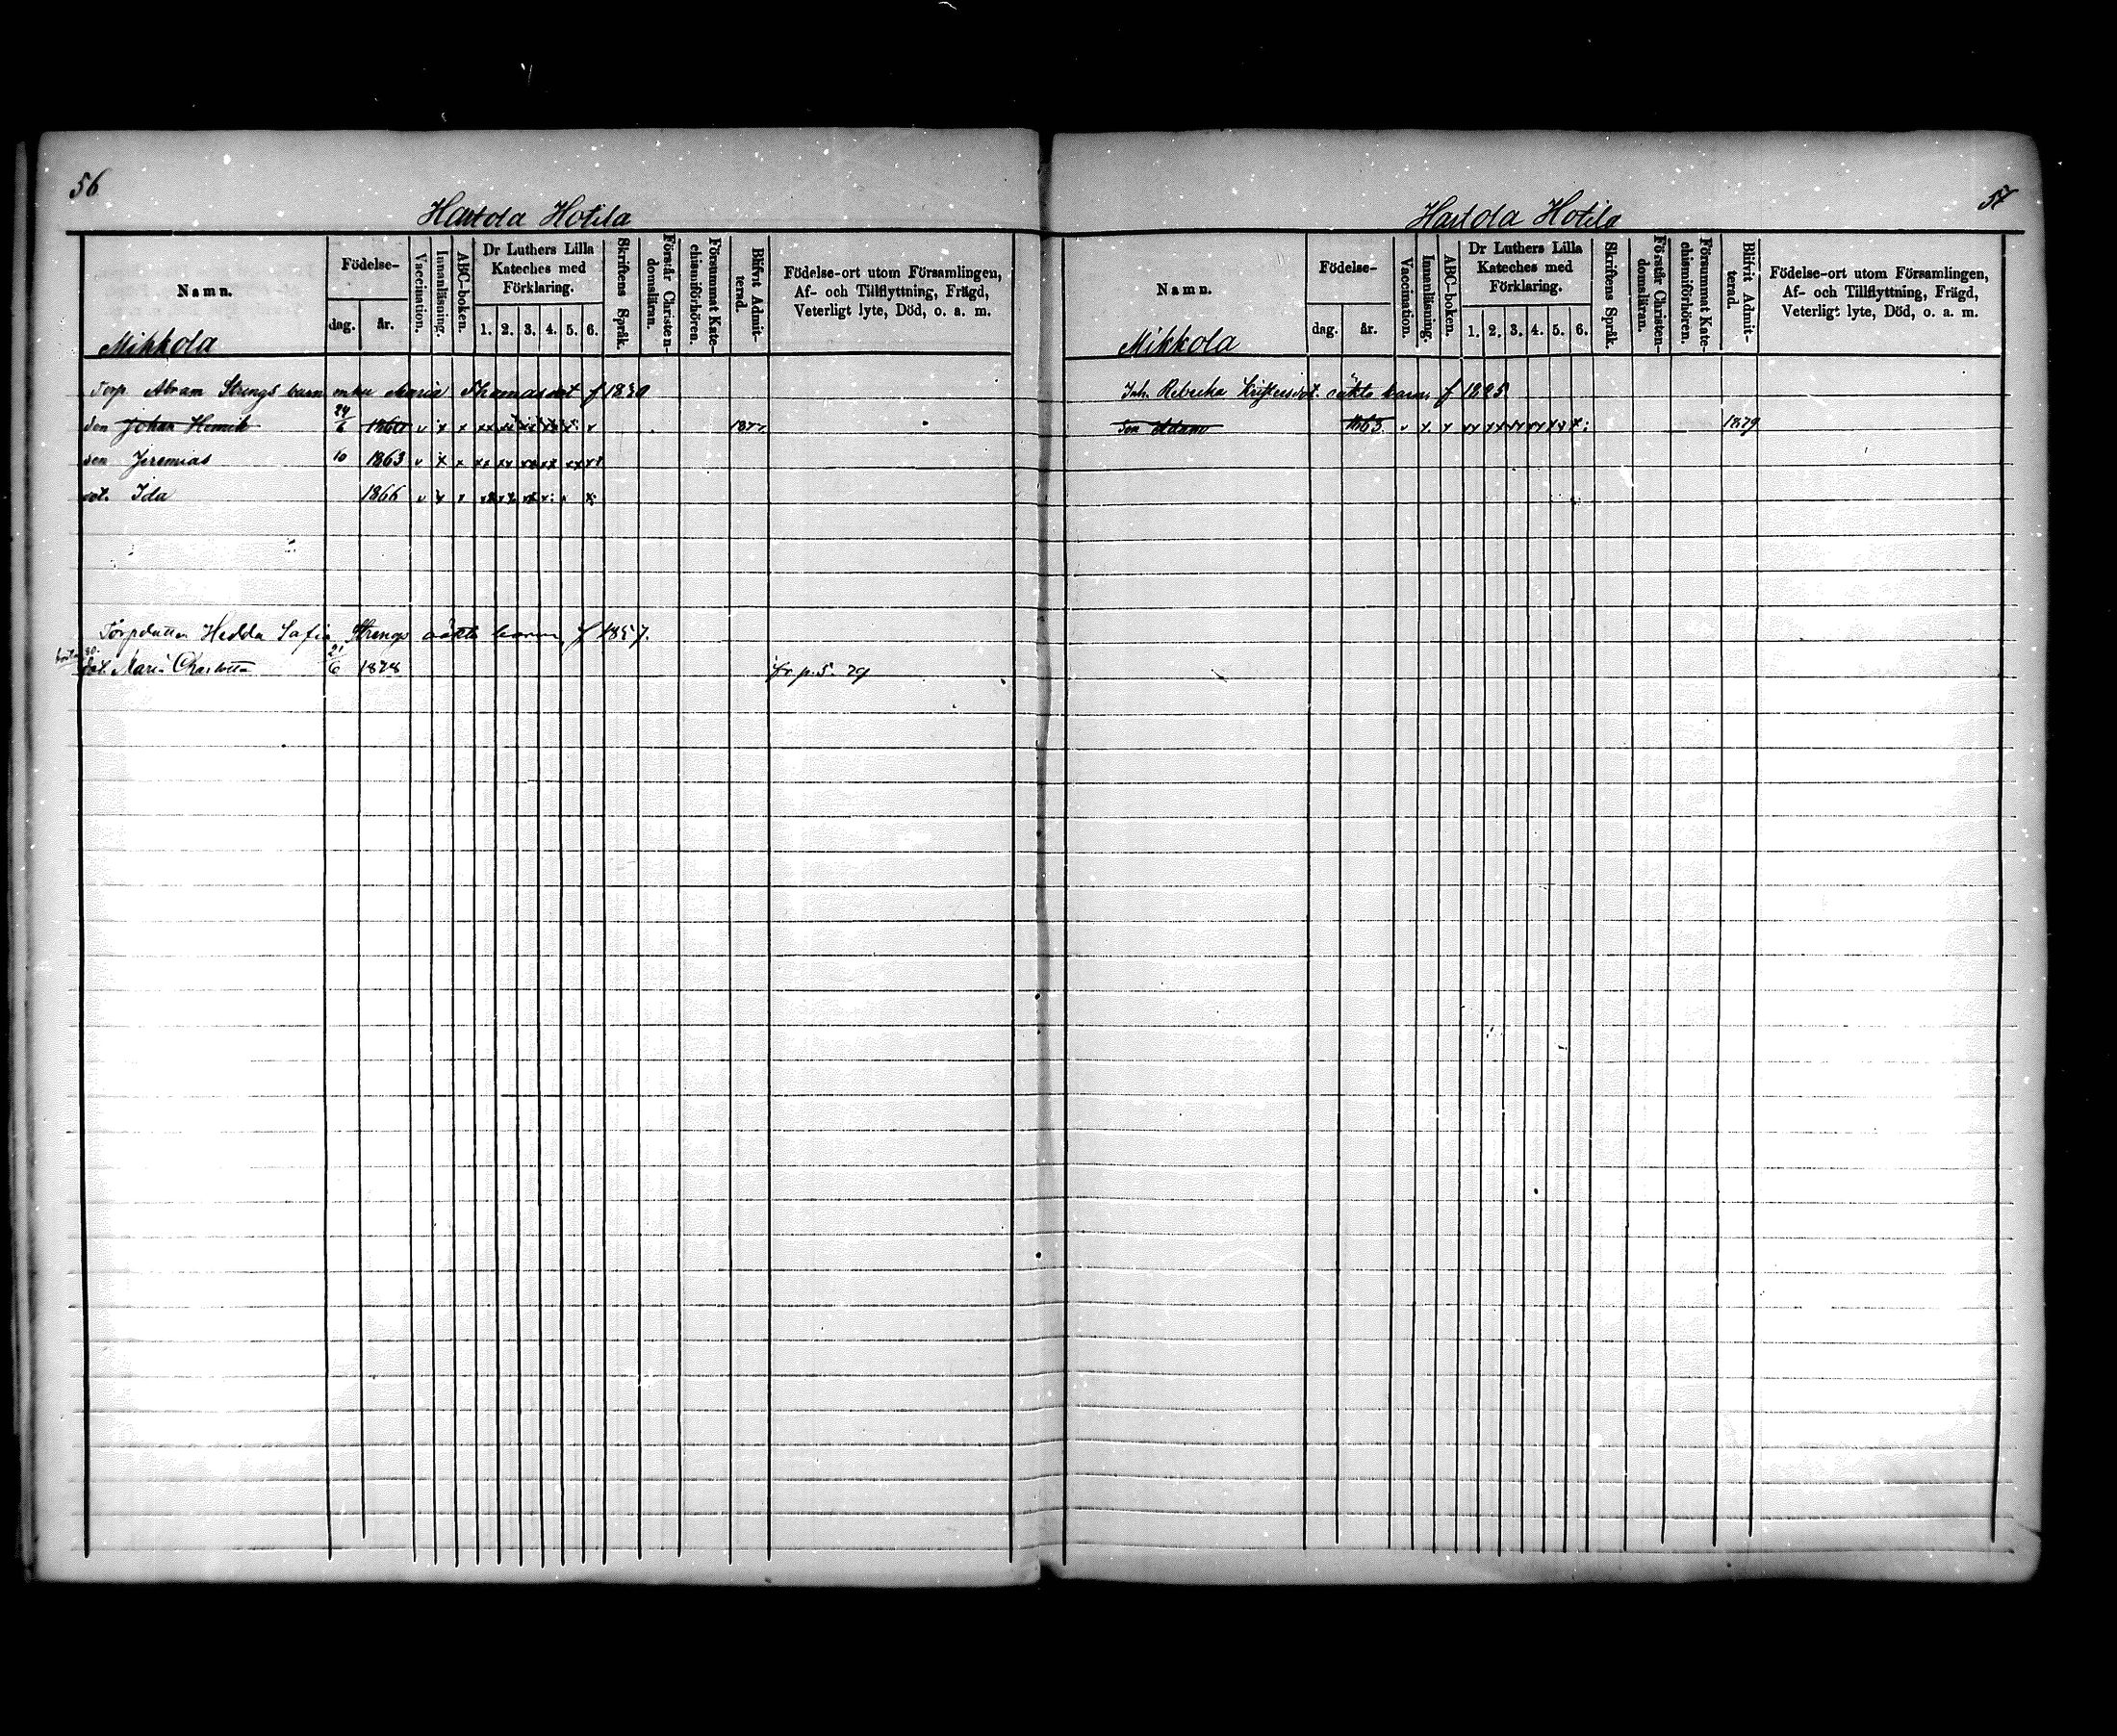 56
Hartola Hotila
Namn.
Födelse-
dag.
år.
Vaccination.
Innanläsning.
ABC-boken.
Dr Luthers Lilla
Kateches med
Förklaring.
1. 2. 3. 4. 5. 6.
Skriftens Språk.
Förstår Christen-
domsläran.
Försummat Kate-
chismiförhören.
Blifvit Admit-
terad.
Födelse-ort utom Församlingen,
Af- och Tillflyttning, Frägd,
Veterligt lyte, Död, o. a. m.
Mikkola
Torp. Abram Strengs barn enka Maria Thomasdot f 1830
Son Johan Henrik 24/6 1860 v x x xx xx xx xx x x 1877
son Jeremias 10 1863 v x x xx xx xx xx xx xx
dot. Ida 1866 v x x
Hedda Sofia Strengs oäkta barn f 1857.
dot. Maria Charlotta 21/6 1878 fr. p. 5. 79
57
Hartola Hotila
Namn.
Födelse-
dag.
år.
Vaccination.
Innanläsning.
ABC-boken.
Dr Luthers Lilla
Kateches med
Förklaring.
1. 2. 3. 4. 5. 6.
Skriftens Språk.
Förstår Christen-
domsläran.
Försummat Kate-
chismiförhören.
Blifvit Admit-
terad.
Födelse-ort utom Församlingen,
Af- och Tillflyttning, Frägd,
Veterligt lyte, Död, o. a. m.
Mikkola
Inh. Rebecka oäkta barn f 1825
Son Adam 1863. v x x xx xx xx xx xx x 1879